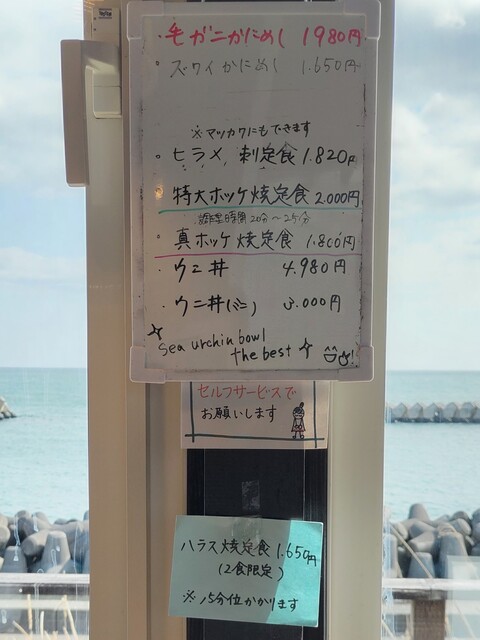 ・毛ガニかにめし 1980円
・ズワイかにめし 1.650円
※マツカワにもできます
・ヒラメ刺定食 1.820円
特大ホッケ焼定食 2.000円
調理時間20分～25分
・真ホッケ焼定食 1.800円
・ウニ丼 4.980円
・ウニ丼(ミニ) 3.000円
sea urchin bowl
the best
セルフサービスで
お願いします
ハラス焼定食 1.650円
(2食限定)
※15分位かかります